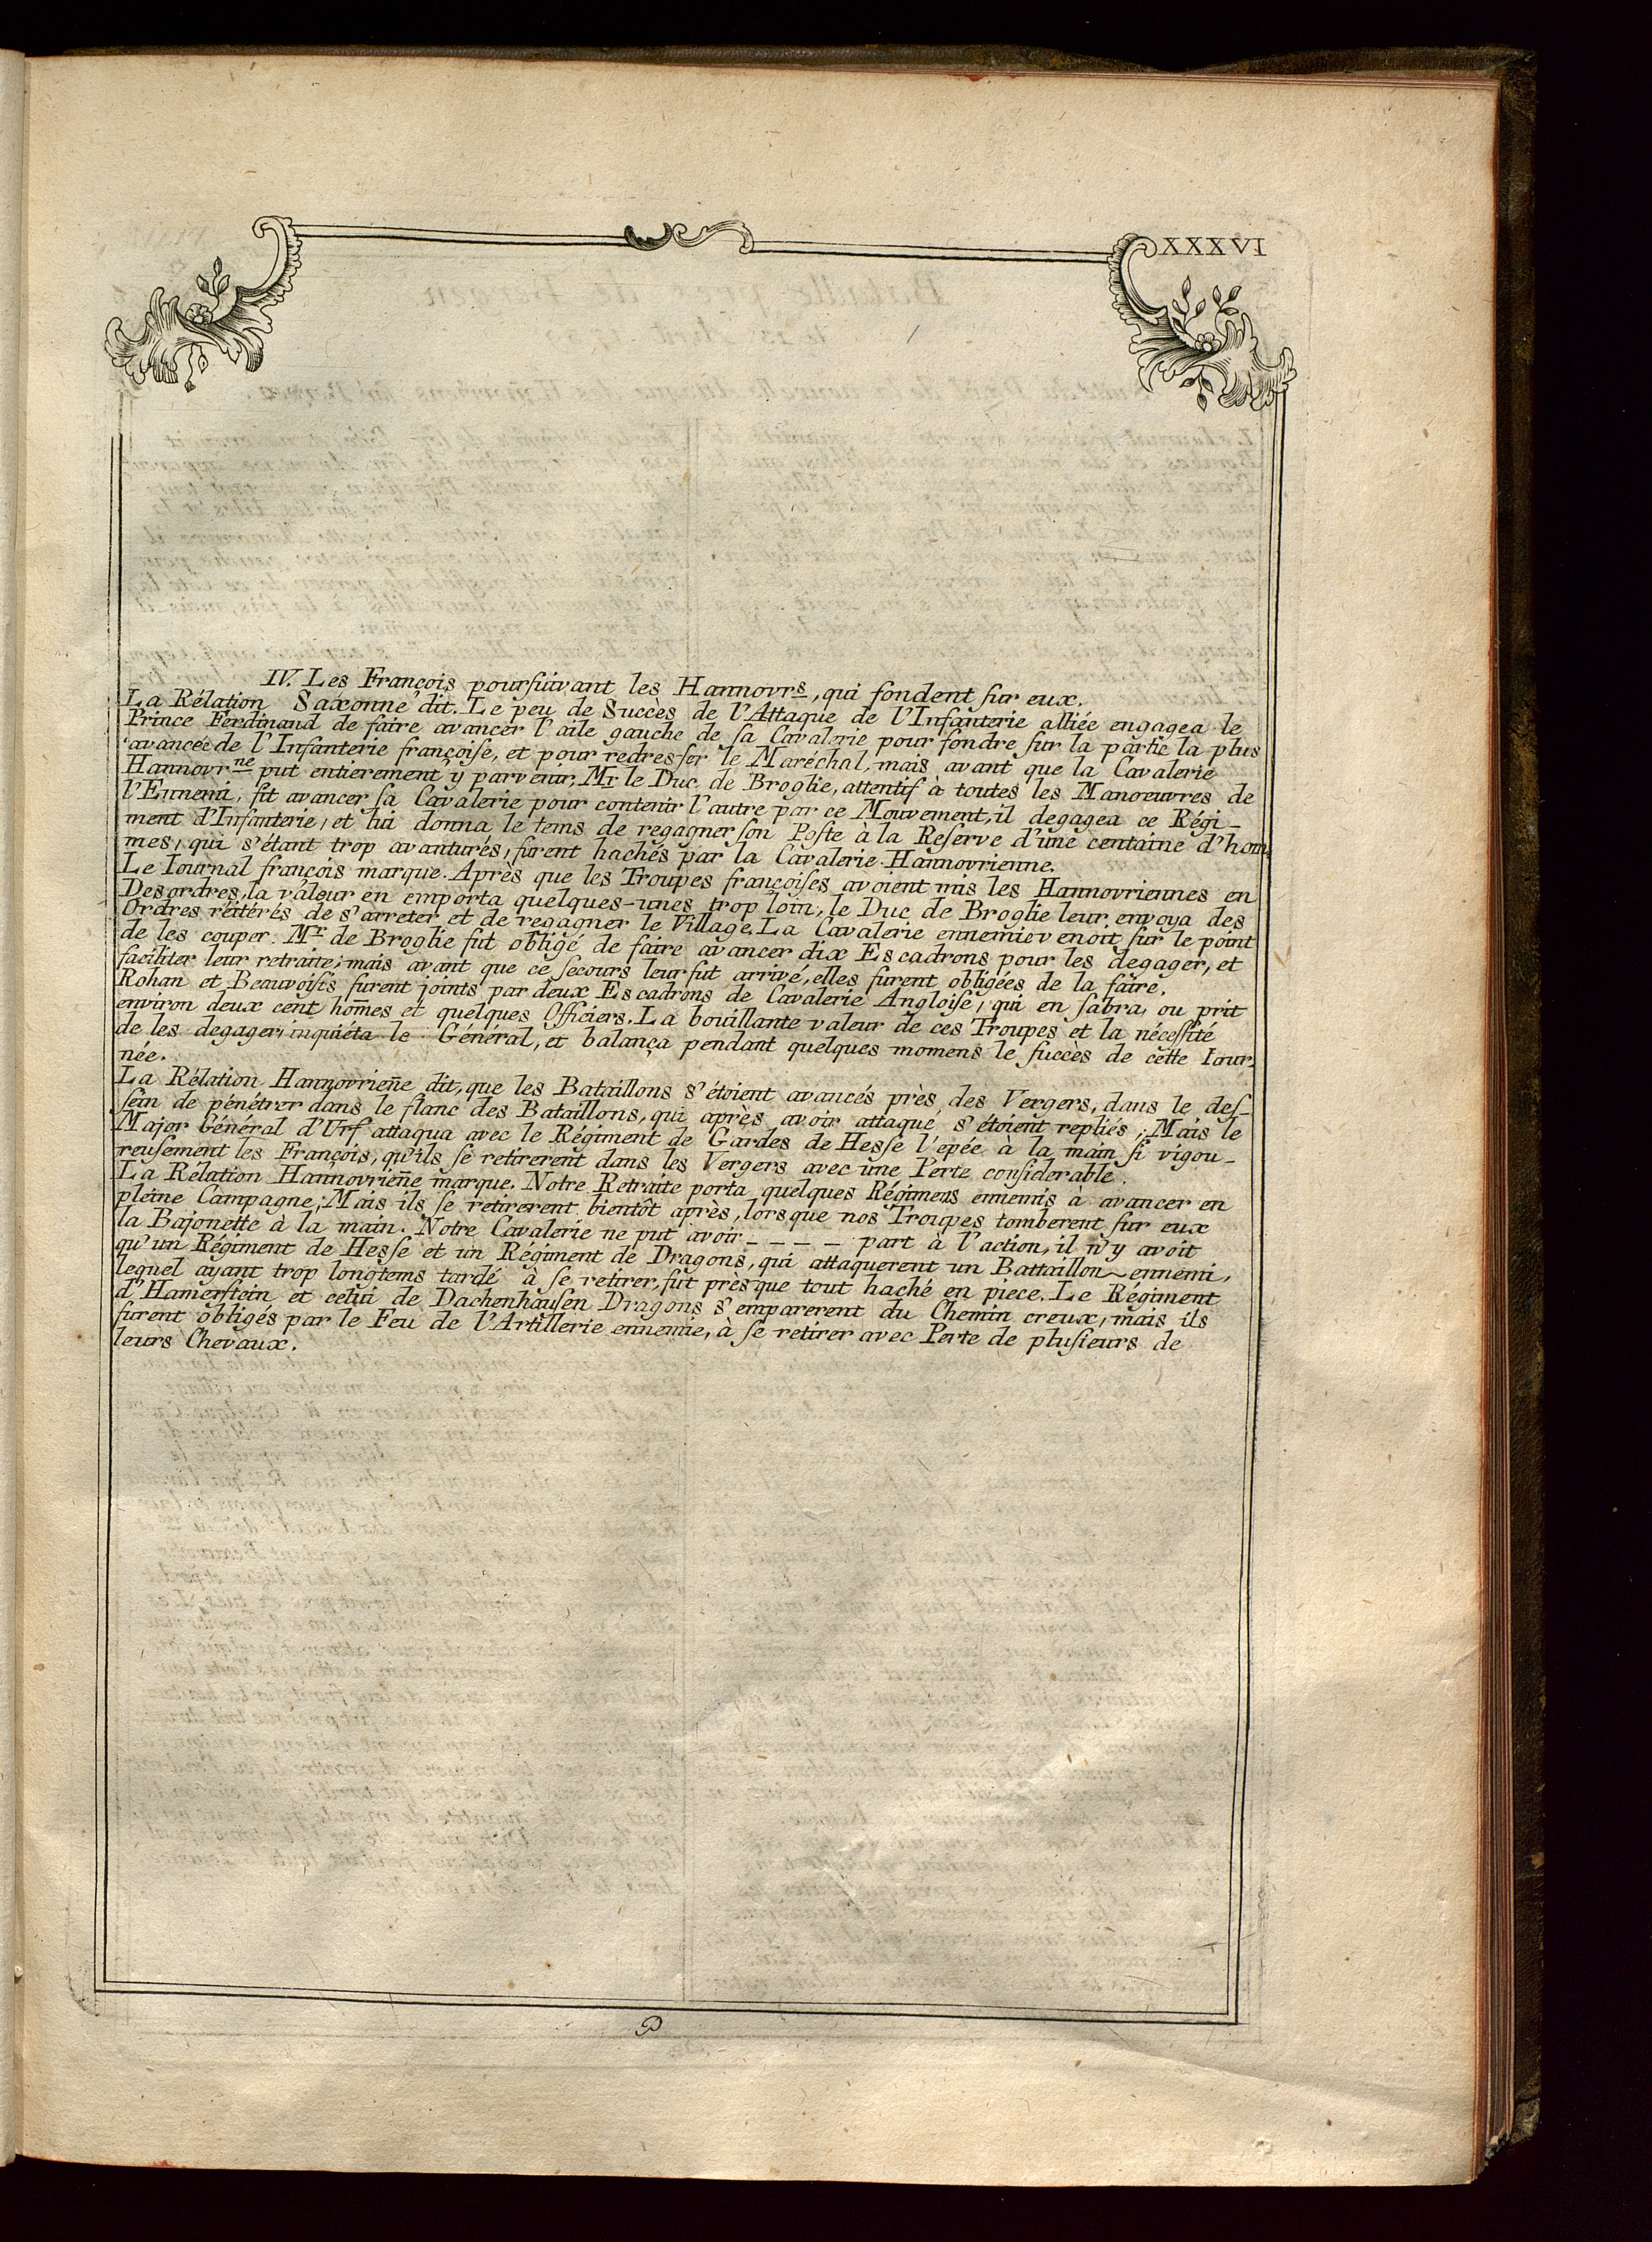 XXXVI
IV. Les François poursuivant les Hannovrs, qui fondent sur eux.
La Rélation Saxonne dit. Le peu de Succes de l'Attaque de l'Infanterie alliée engagea le
Prince Ferdinand de faire avancer l'aile gauche de sa Cavalerie pour fondre sur la partie la plus
avancée de l'Infanterie françoise, et pour redresser le Maréchal, mais avant que la Cavalerie
Hannovrne put entierement y parvenir, Mr le Duc de Broglie, attentif à toutes les Manoeuvres de
l'Ennemi, fit avancer sa Cavalerie pour contenir l'autre par ce Mouvement, il degagea ce Régi-
ment d'Infanterie, et lui donna le tems de regagner son Poste à la Reserve d'une centaine d'hom-
mes, qui s'étant trop avanturés, furent hachés par la Cavalerie Hannovrienne.
Le Iournal françois marque. Après que les Troupes françoises avoient mis les Hannovriennes en
Desordres, la valeur en emporta quelques-unes trop loin, le Duc de Broglie leur envoya des
Ordres réitérés de s'arreter et de regagner le Village. La Cavalerie ennemie venoit sur le point
de les couper. Mr de Broglie fut obligé de faire avancer dix Escadrons pour les degager, et
faciliter leur retraite; mais avant que ce secours leur fut arrivé, elles furent obligées de la faire.
Rohan et Beauvoisis furent joints par deux Escadrons de Cavalerie Angloise, qui en sabra, ou prit
environ deux cent hom̄es et quelques Officiers. La bouillante valeur de ces Troupes et la nécessité
de les degager inquiéta le Général, et balança pendant quelques momens le succès de cette Iour-
née.
La Rélation Hannovrien̄e dit, que les Bataillons s'étoient avancés près des Vergers, dans le des-
sein de pénétrer dans le flanc des Bataillons, qui après avoir attaque s'étoient repliés; Mais le
Major Général d'Urf attaqua avec le Régiment de Gardes de Hesse l'epée à la main si vigou-
reusement les François, qu'ils se retirerent dans les Vergers avec une Perte considerable.
La Rélation Hannovrien̄e marque. Notre Retraite porta quelques Régimens ennemis à avancer en
pleine Campagne; Mais ils se retirerent bientôt après, lorsque nos Troupes tomberent sur eux
la Bajonette à la main. Notre Cavalerie ne put avoir - - - - part à l'action, il n'y avoit
qu'un Régiment de Hesse et un Régiment de Dragons, qui attaquerent un Battaillon ennemi,
lequel ayant trop longtems tardé à se retirer, fut près que tout haché en piece. Le Régiment
d'Hamerstein et celui de Dachenhausen Dragons s'emparerent du Chemin creux, mais ils
furent obligés par le Feu de l'Artillerie ennemie, à se retirer avec Perte de plusieurs de
leurs Chevaux.